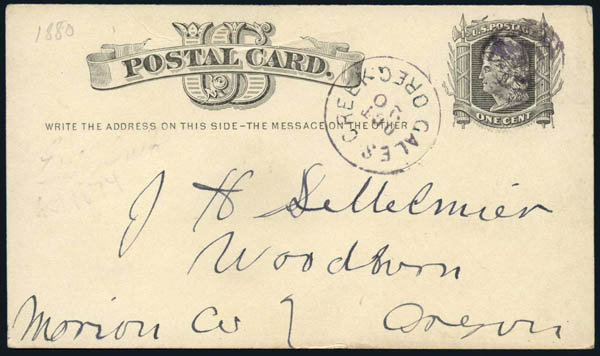 1880
U.S. POSTAGE
US
POSTAL CARD.
ONE CENT
WRITE THE ADDRESS ON THIS SIDE–THE MESSAGE ON THE OTHER
GALES CREEK OREG
J H Settlemier
Woodburn
Marion Co Oregon